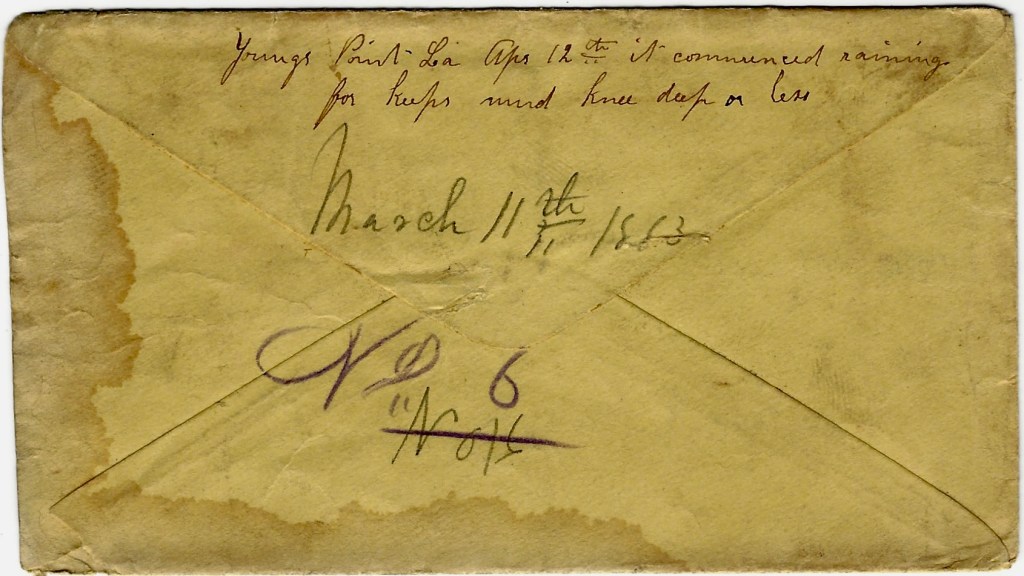 Youngs Point La Apr 12th it commenced raining
for keeps mud knee deep or less
March 11th 1863
No 6
No